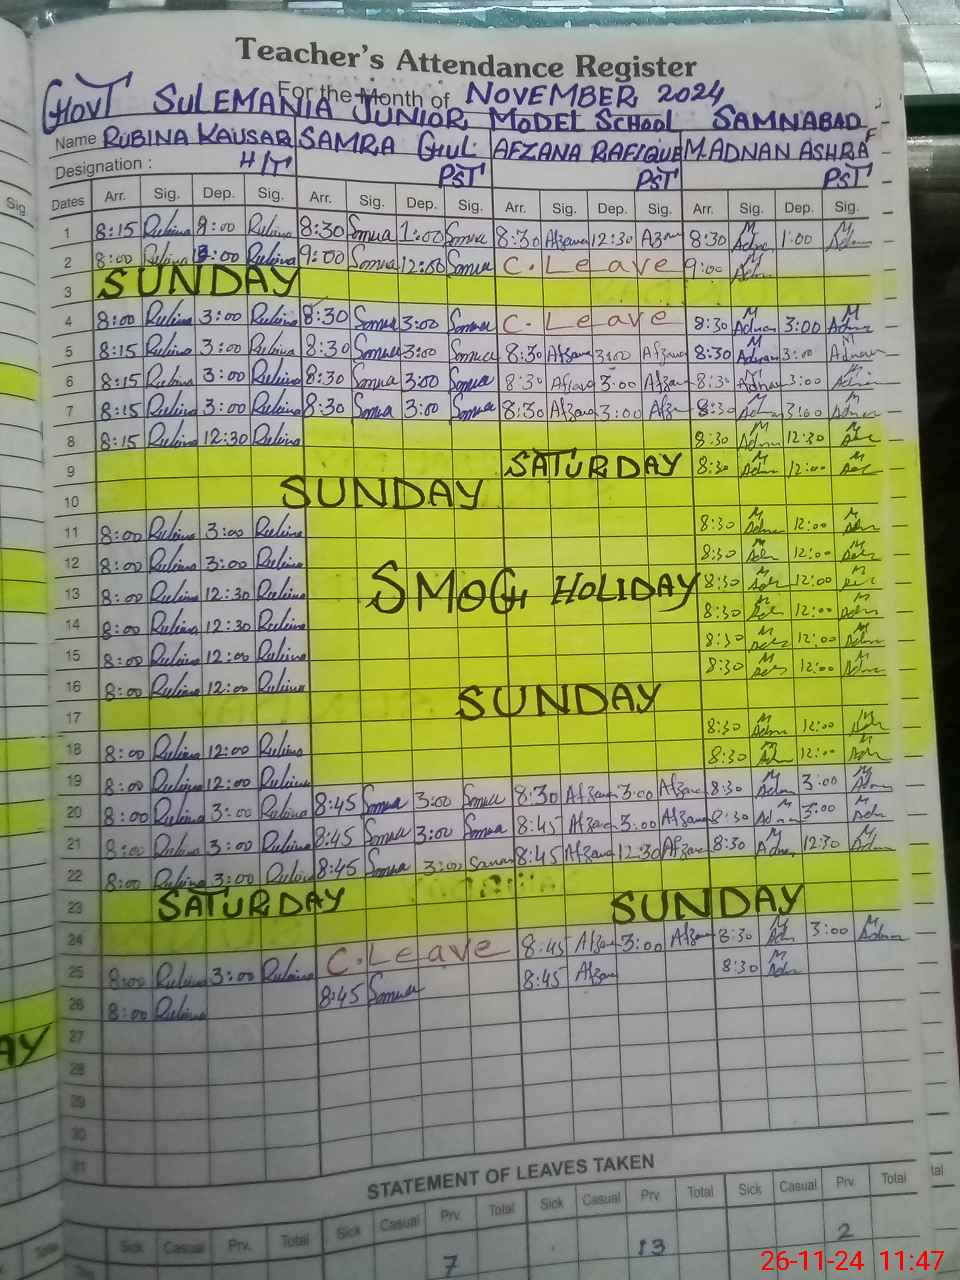 Teacher's Attendance Register
For the Month of NOVEMBER 2024
GOVT SULEMANIA JUNIOR MODEL SCHOOL SAMNABAD
Name RUBINA KAUSAR SAMRA GUL. AFZANA RAFIQUE M.ADNAN ASHRAF
Designation : H/T PST PST PST
Dates Arr. Sig. Dep. Sig. Arr. Sig. Dep. Sig. Arr. Sig. Dep. Sig. Arr. Sig. Dep. Sig.
1 8:15 Rubina 9:00 Rubina 8:30 Samra 1:00 Samra 8:30 Afzana 12:30 Afzana 8:30 1:00
2 8:00 Rubina Rubina 9:00 Samra 12:00 Samra C. Leave 9:00
3 SUNDAY
4 8:00 Rubina 3:00 Rubina 8:30 Samra 3:00 Samra C. Leave 8:30 M Adnan 3:00 M Adnan
5 8:15 Rubina 3:00 Rubina 8:30 Samra 3:00 Samra 8:30 Afzana 3:00 Afzana 8:30 M Adnan 3:00 M Adnan
6 8:15 Rubina 3:00 Rubina 8:30 Samra 3:00 Samra 8:30 Afzana 3:00 Afzana 8:30 M Adnan 3:00 M Adnan
7 8:15 Rubina 3:00 Rubina 8:30 Samra 3:00 Samra 8:30 Afzana 3:00 Afzana 8:30 3:00
8 8:15 Rubina 12:30 Rubina 8:30 12:30
9 SATURDAY 8:30 12:00
10 SUNDAY
11 8:00 Rubina 3:00 Rubina 8:30 12:00
12 8:00 Rubina 3:00 Rubina 8:30 12:00
13 8:00 Rubina 12:30 Rubina SMOG HOLIDAY 8:30 12:00
14 8:00 Rubina 12:30 Rubina 8:30 12:00
15 8:00 Rubina 12:00 Rubina 8:30 12:00
16 8:00 Rubina 12:00 Rubina 8:30 12:00
17 SUNDAY
18 8:00 Rubina 12:00 Rubina 8:30 12:00
19 8:00 Rubina 12:00 Rubina 8:30 12:00
20 8:00 Rubina 3:00 Rubina 8:45 Samra 3:00 Samra 8:30 Afzana 3:00 Afzana 8:30 3:00
21 8:00 Rubina 3:00 Rubina 8:45 Samra 3:00 Samra 8:45 Afzana 3:00 Afzana 8:30 3:00
22 8:00 Rubina 3:00 Rubina 8:45 Samra 3:00 Samra 8:45 Afzana 12:30 Afzana 8:30 12:30
23 SATURDAY SUNDAY
24
25 8:00 Rubina 3:00 Rubina C. Leave 8:45 Afzana 3:00 Afzana 8:30 3:00
26 8:00 Rubina 8:45 Samra 8:45 Afzana 8:30
27
28
29
30
31
STATEMENT OF LEAVES TAKEN
Sick Casual Prv. Total Sick Casual Prv. Total Sick Casual Prv. Total Sick Casual Prv. Total
7 13 2
26-11-24 11:47